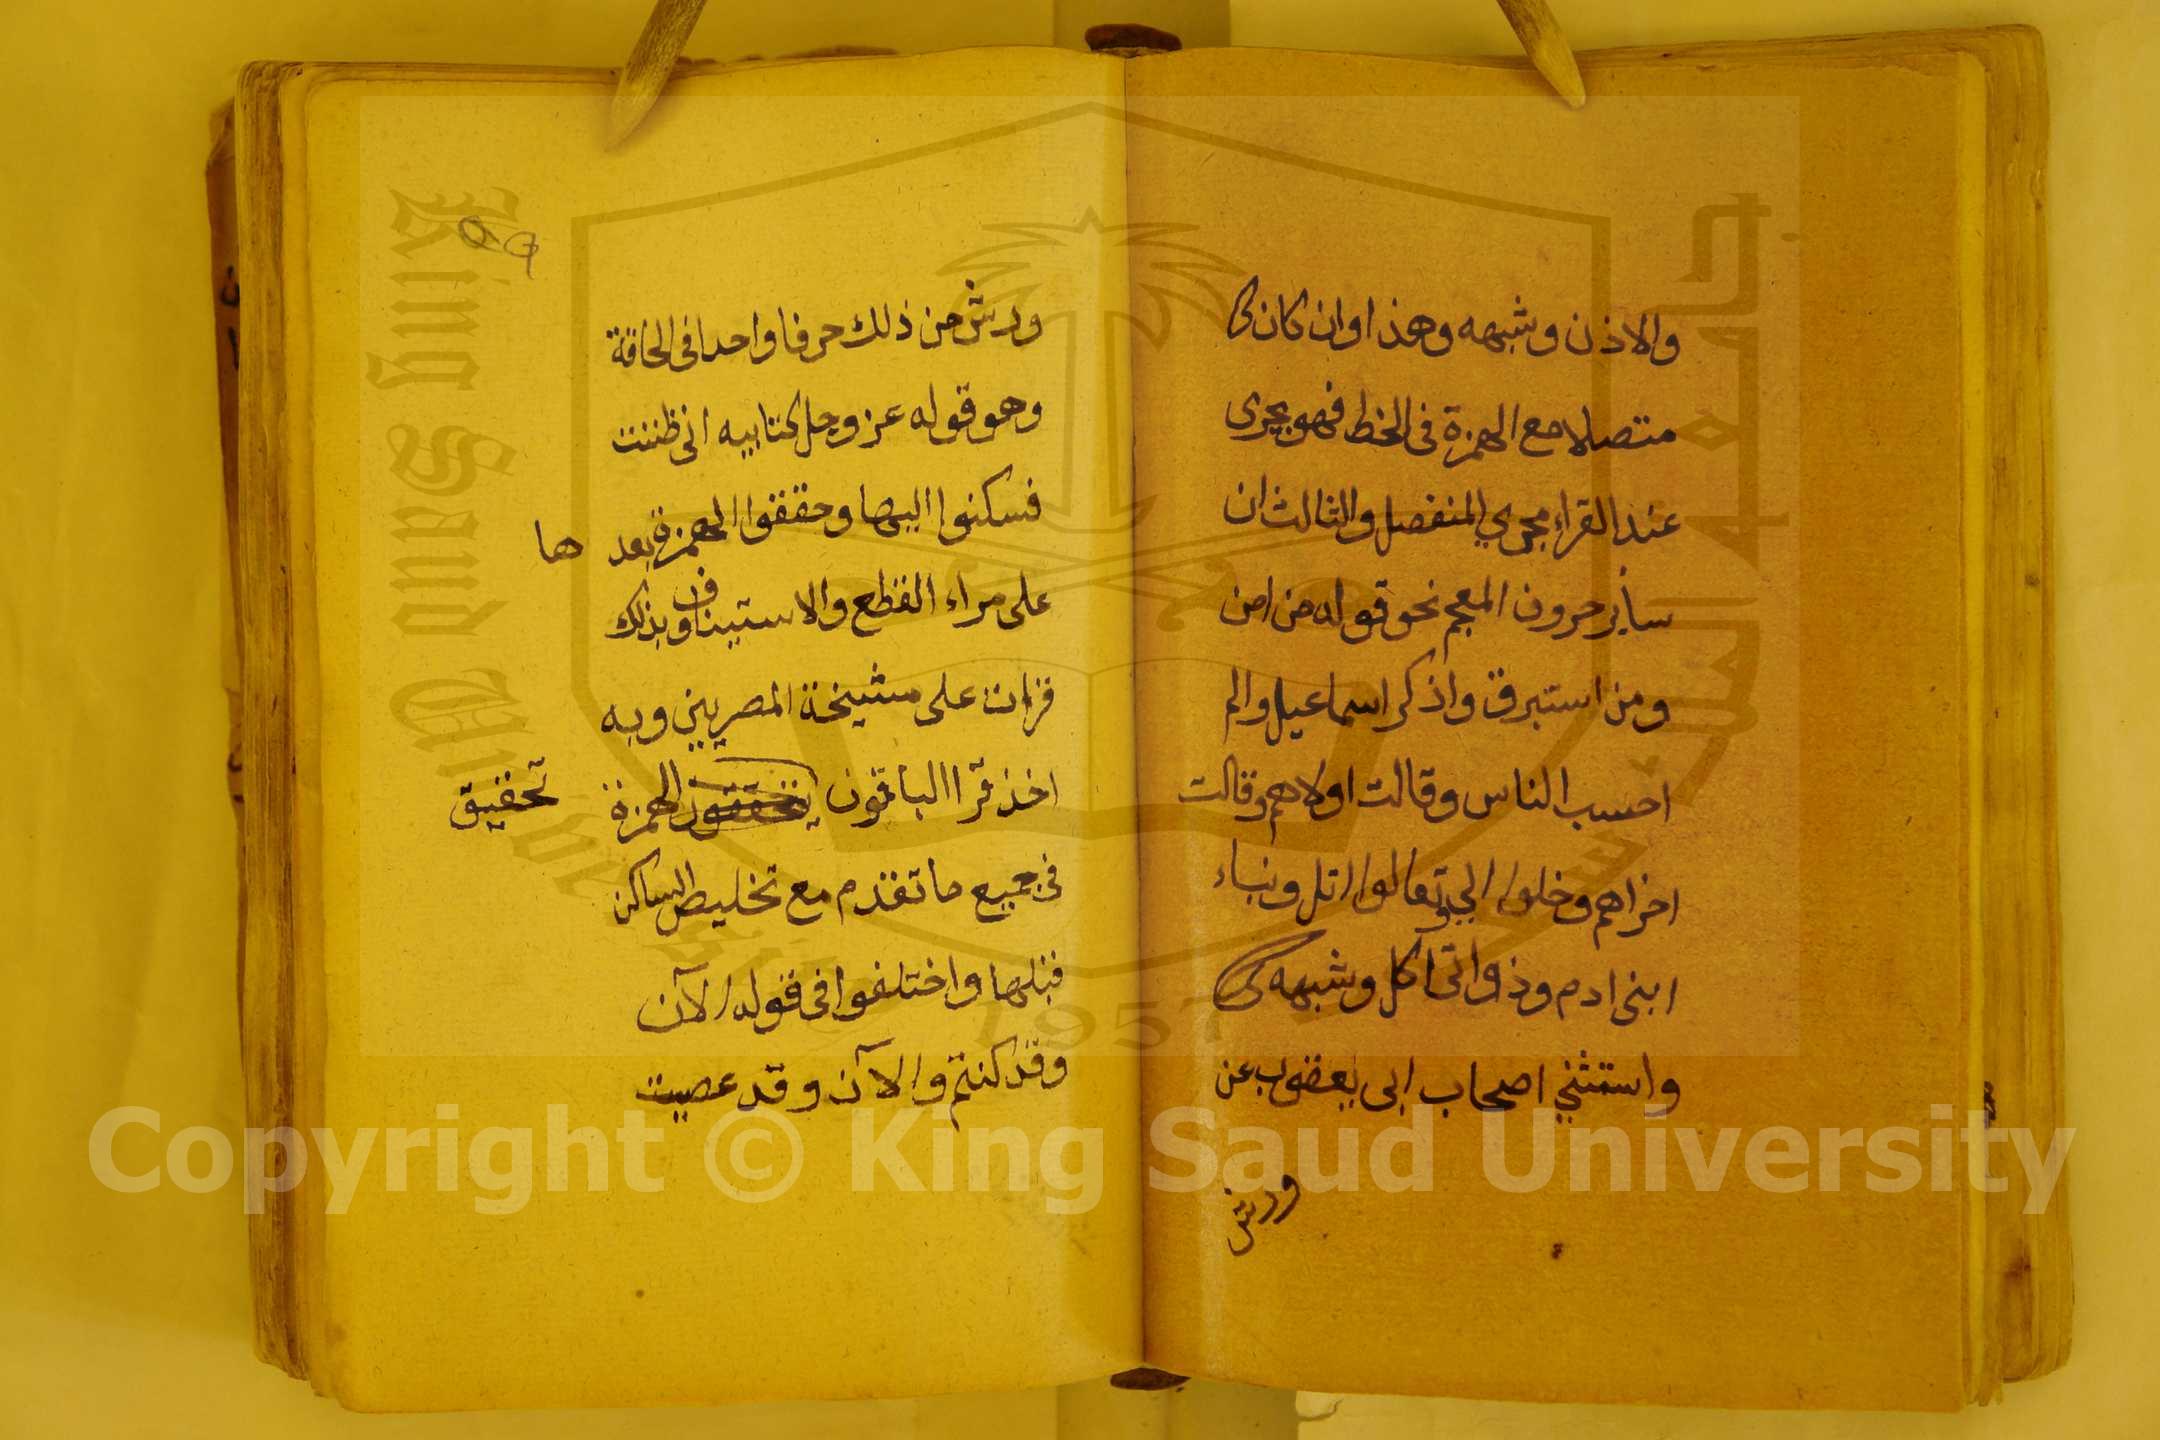 والاذن وشبهه وهذا وان كان
متصلا مع الهمزة فى الخط فهو يجرى
عند القراء مجرى المنفصل والثالث ان
ساير حروف المعجم نحو قوله من امن
ومن استبرق واذكر اسماعيل والم
احسب الناس وقالت اولاهم وقالت
اخراهم وخلوا الي وتعالوا اتل ونباء
ابنى ادم وذواتى اكل وشبهه
واستثنى اصحاب ابى يعقوب عن
ورش
٥٩
ورش من ذلك حرفا واحدا فى الحاقة
وهو قوله عز وجل كتابيه انى ظننت
فسكنوا اليها وحققوا الهمزة بعد ها
على مراء القطع والاستيناف وبذلك
قرات على مشيخة المصريين وبه
اخذ قرا الباقون تحقيق الهمزة
فى جميع ما تقدم مع تخليص الساكن
قبلها واختلفوا فى قوله الآن
وقد كنتم والآن وقد عصيت
King Saud University
جامعة الملك سعود
1957
Copyright © King Saud University